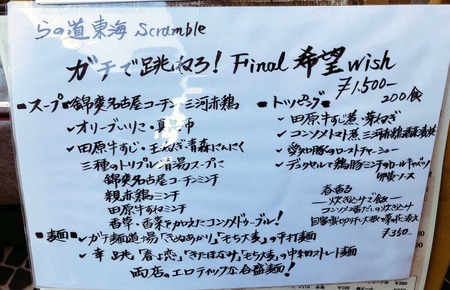 らの道東海 Scramble
ガチで跳ねろ! Final 希望 wish
¥1,500- 200食
■スープ 錦爽名古屋コーチン・三河赤鶏
✓オリーブいりこ・真昆布
✓田原牛すじ・玉ねぎ・青森にんにく
三種のトリプル清湯スープに
錦爽名古屋コーチンミンチ
親赤鶏ミンチ
田原牛すねミンチ
香草・香菜を加えたコンソメドゥーブル!
■麺 ✓ガチ麺道場「きぬあかり」「もち大麦」の平打麺
✓幸跳「春よ恋」「きたほなみ」「もち大麦」の中細ストレート麺
両店のエロティックな合盛麺!
■トッピング
✓田原牛すじ煮・芽ねぎ
✓コンソメトマト煮三河赤鶏
✓愛知豚のローストチャーシュー
✓デュクセルと鶏豚ミンチのロールキャベツ
春香る
炊き込みご飯
¥350-